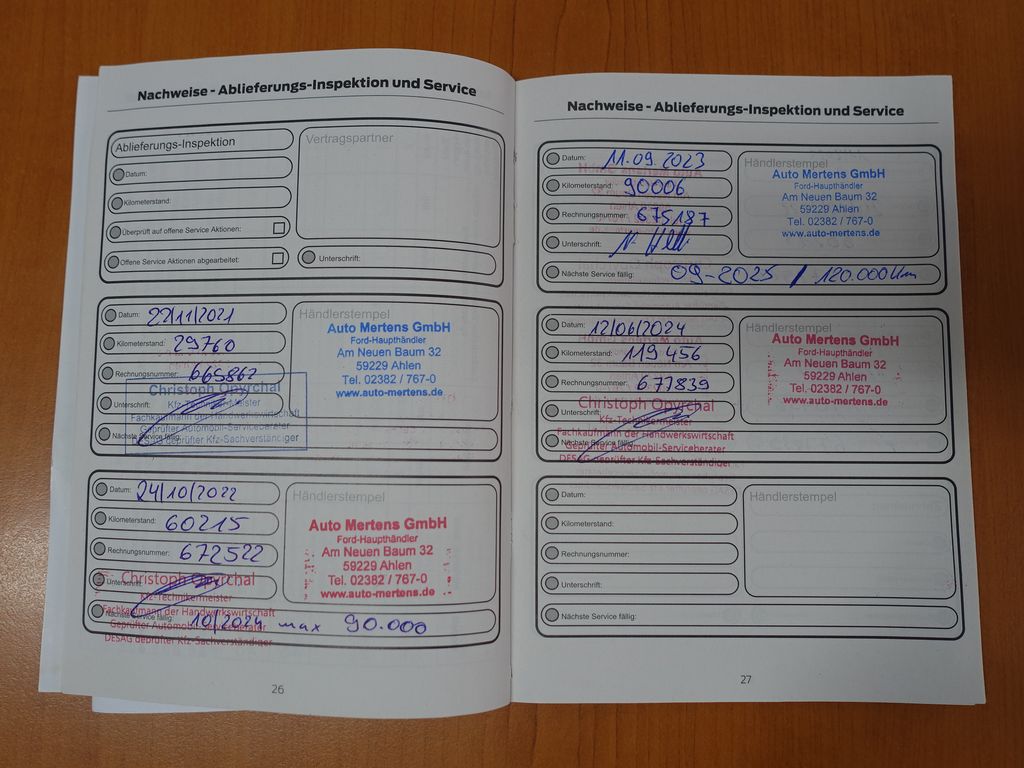 Nachweise - Ablieferungs-Inspektion und Service
Ablieferungs-Inspektion
Vertragspartner
Datum:
Kilometerstand:
Überprüft auf offene Service Aktionen:
Offene Service Aktionen abgearbeitet:
Unterschrift:
Datum: 22/11/2021
Kilometerstand: 29760
Rechnungsnummer: 665867
Unterschrift:
Nächste Service fällig:
Christoph Opyrchal
Kfz-Technikermeister
Fachkaufmann der Handwerkswirtschaft
Geprüfter Automobil-Serviceberater
DESAG geprüfter Kfz-Sachverständiger
Händlerstempel
Auto Mertens GmbH
Ford-Haupthändler
Am Neuen Baum 32
59229 Ahlen
Tel. 02382 / 767-0
www.auto-mertens.de
Datum: 24/10/2022
Kilometerstand: 60215
Rechnungsnummer: 672522
Unterschrift:
Nächste Service fällig: 10/2024 max 90.000
Christoph Opyrchal
Kfz-Technikermeister
Fachkaufmann der Handwerkswirtschaft
Geprüfter Automobil-Serviceberater
DESAG geprüfter Kfz-Sachverständiger
Händlerstempel
Auto Mertens GmbH
Ford-Haupthändler
Am Neuen Baum 32
59229 Ahlen
Tel. 02382 / 767-0
www.auto-mertens.de
26
Nachweise - Ablieferungs-Inspektion und Service
Datum: 11.09.2023
Kilometerstand: 90006
Rechnungsnummer: 675187
Unterschrift:
Nächste Service fällig: 09-2025 / 120.000 km
Händlerstempel
Auto Mertens GmbH
Ford-Haupthändler
Am Neuen Baum 32
59229 Ahlen
Tel. 02382 / 767-0
www.auto-mertens.de
Datum: 12/06/2024
Kilometerstand: 119 456
Rechnungsnummer: 677839
Unterschrift:
Nächste Service fällig:
Christoph Opyrchal
Kfz-Technikermeister
Fachkaufmann der Handwerkswirtschaft
Geprüfter Automobil-Serviceberater
DESAG geprüfter Kfz-Sachverständiger
Händlerstempel
Auto Mertens GmbH
Ford-Haupthändler
Am Neuen Baum 32
59229 Ahlen
Tel. 02382 / 767-0
www.auto-mertens.de
Datum:
Kilometerstand:
Rechnungsnummer:
Unterschrift:
Nächste Service fällig:
Händlerstempel
27